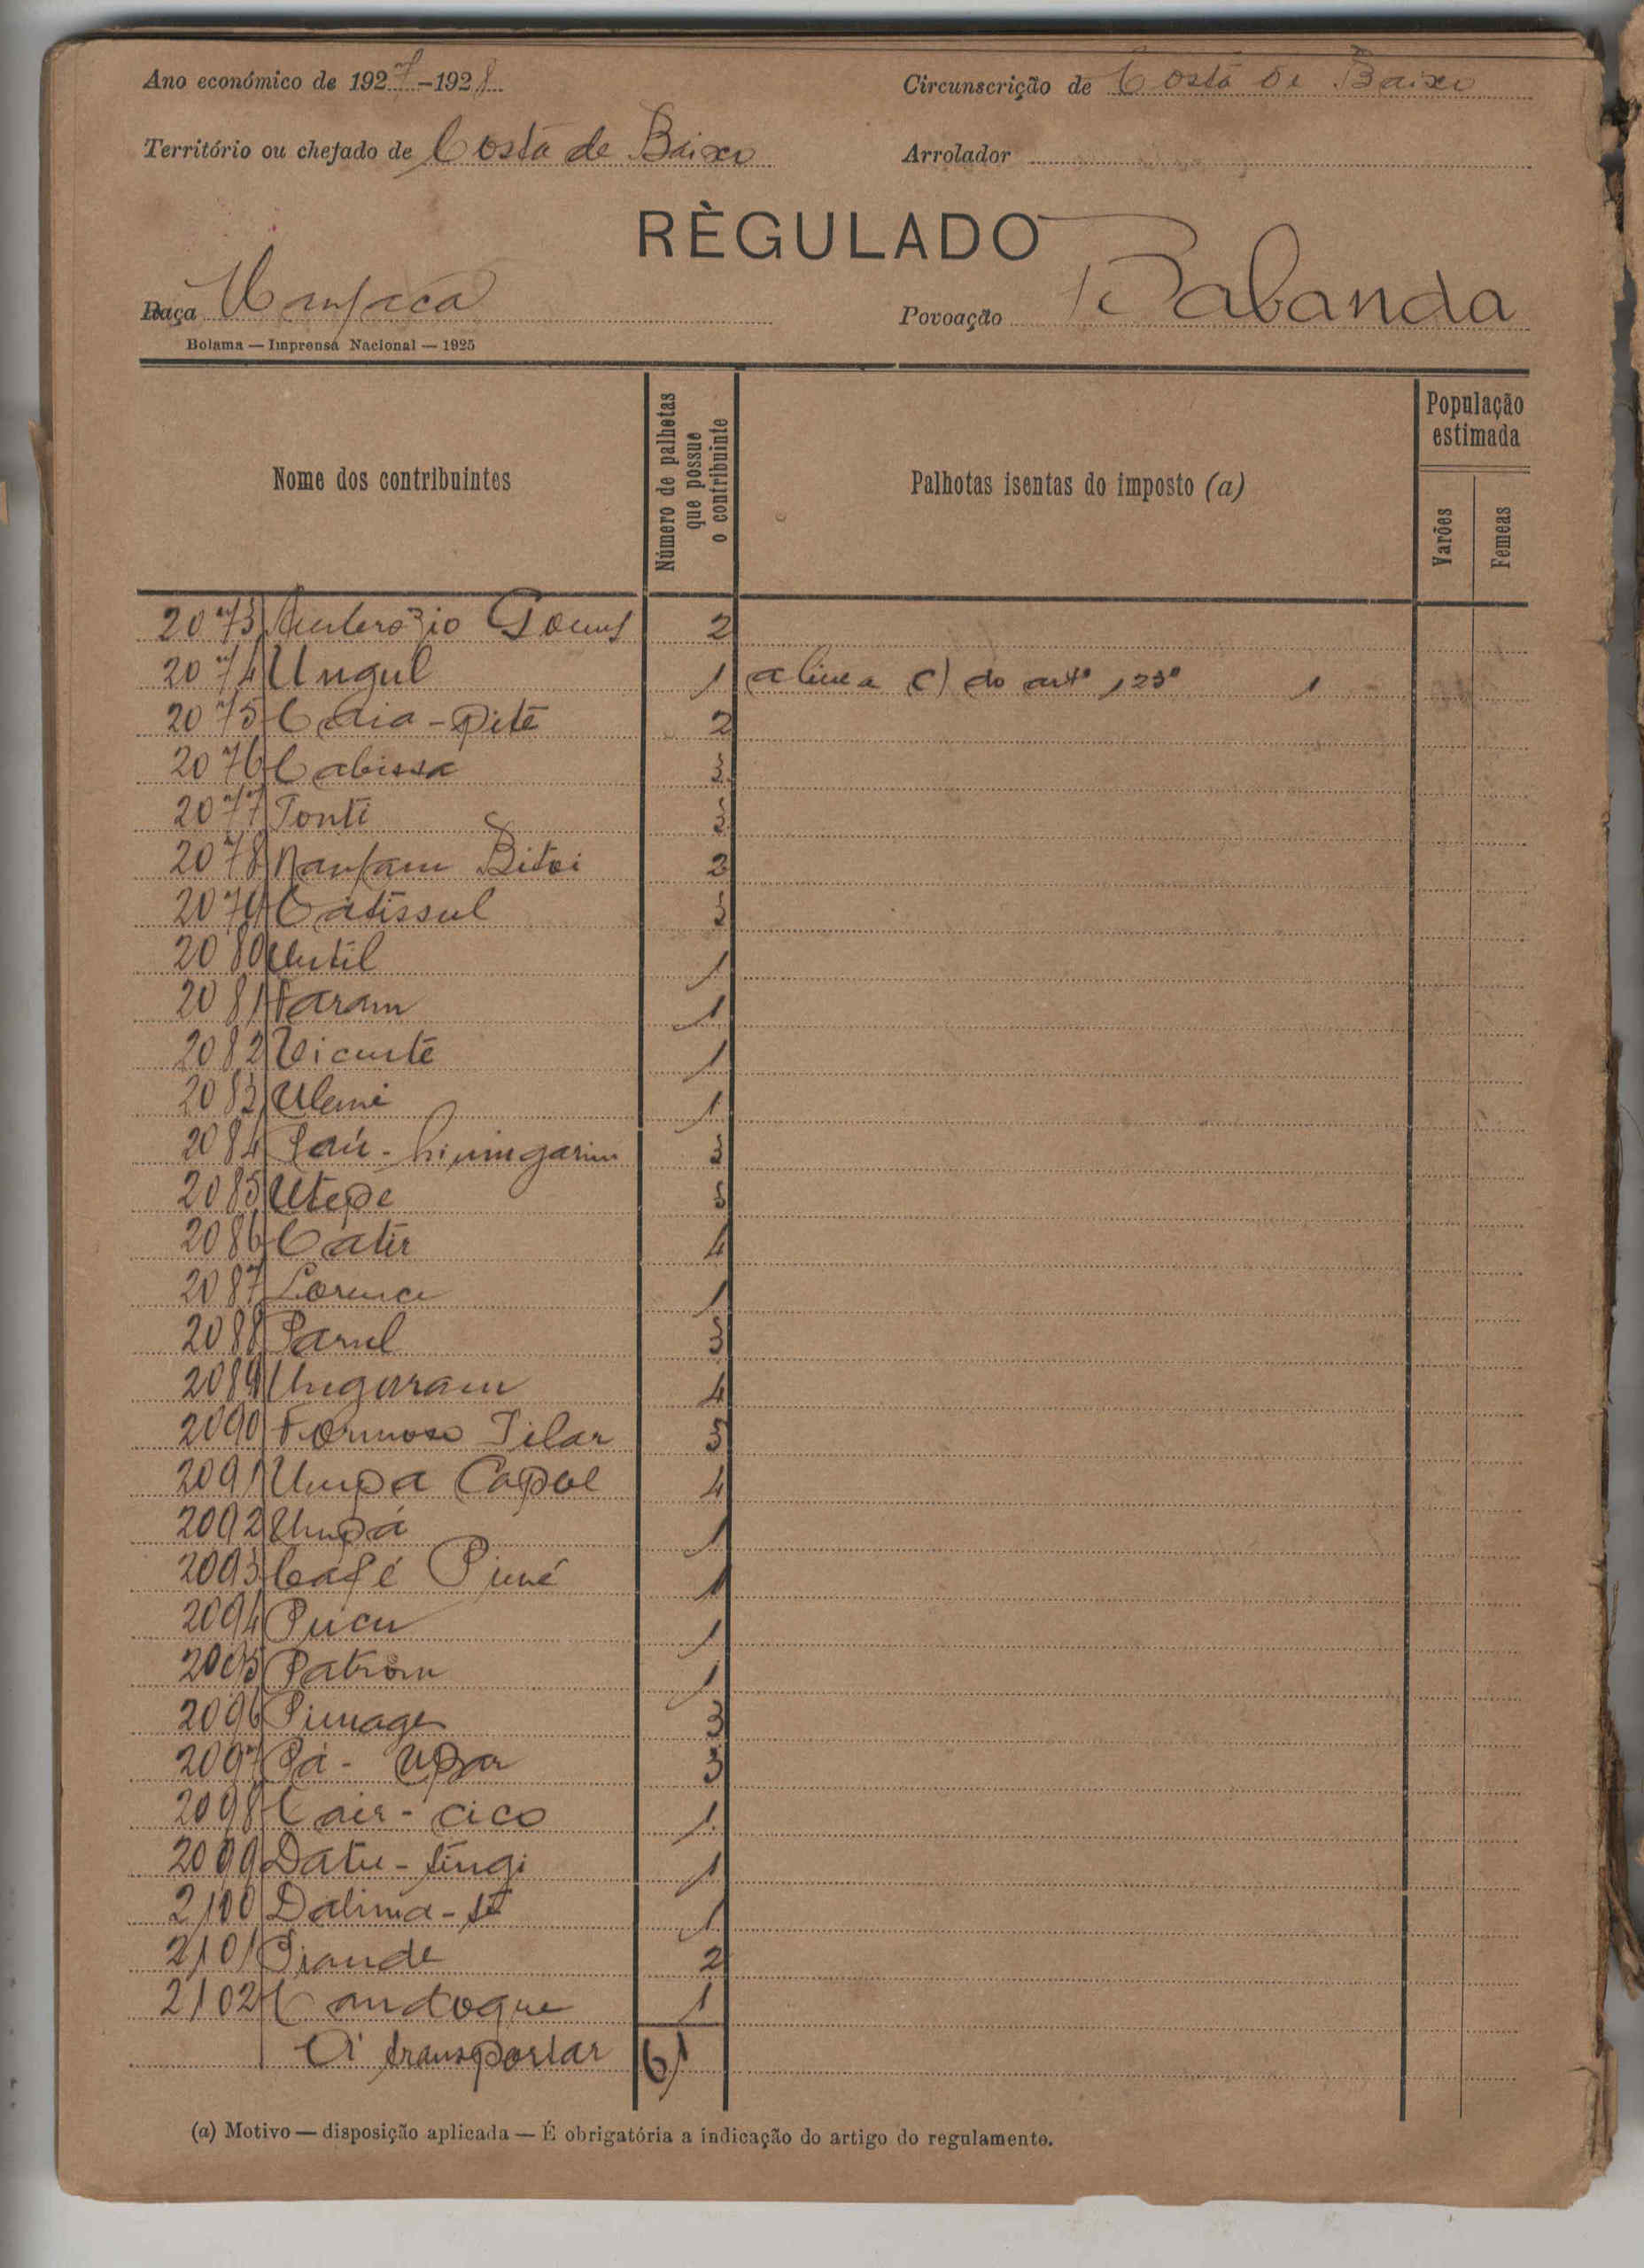 Ano económico de 1927-1928
Circunscrição de Costa de Baixo
Território ou chefado de Costa de Baixo
Arrolador
RÈGULADO
Raça Manjaca
Povoação Babanda
Bolama — Imprensa Nacional — 1925
Nome dos contribuintes
Número de palhetas que possue o contribuinte
Palhotas isentas do imposto (a)
População estimada
Varões
Femeas
2073 Ambrozio Gomes 2
2074 Ungul 1 alinea c) do artº 123º 1
2075 Caia-pité 2
2076 Cabissa 3
2077 Tonti 3
2078 Nanfam Bitoi 3
2079 Catissul 3
2080 Until 1
2081 Naram 1
2082 Vicente 1
2083 Uleni 1
2084 3
2085 Utepe 5
2086 Catir 4
2087 Lorence 1
2088 Parul 3
2089 Ungaram 4
2090 Formoso Pilar 3
2091 Umpa Capol 4
2092 Umpá 1
2093 Café Pimé 1
2094 Pucu 1
2095 Patrom 1
2096 Pimage 3
2097 Pá- Upar 3
2098 Cair-cico 1
2099 Datu-singi 1
2100 Dalima-sé 1
2101 Piande 2
2102 Candoque 1
A transportar 61
(a) Motivo — disposição aplicada — É obrigatória a indicação do artigo do regulamento.